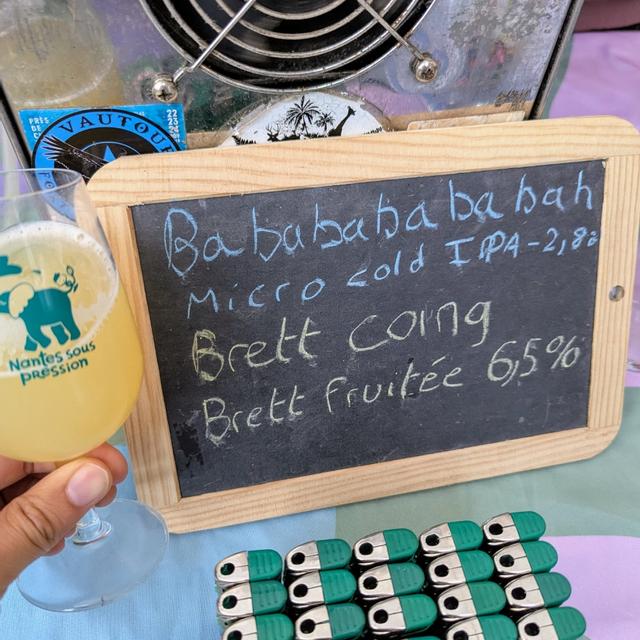 PRÈS
DE
VAUTOUR
22
23
Babababababah
Micro cold IPA-2,8%
Brett coing
Brett fruitée 6,5%
Nantes sous
pression